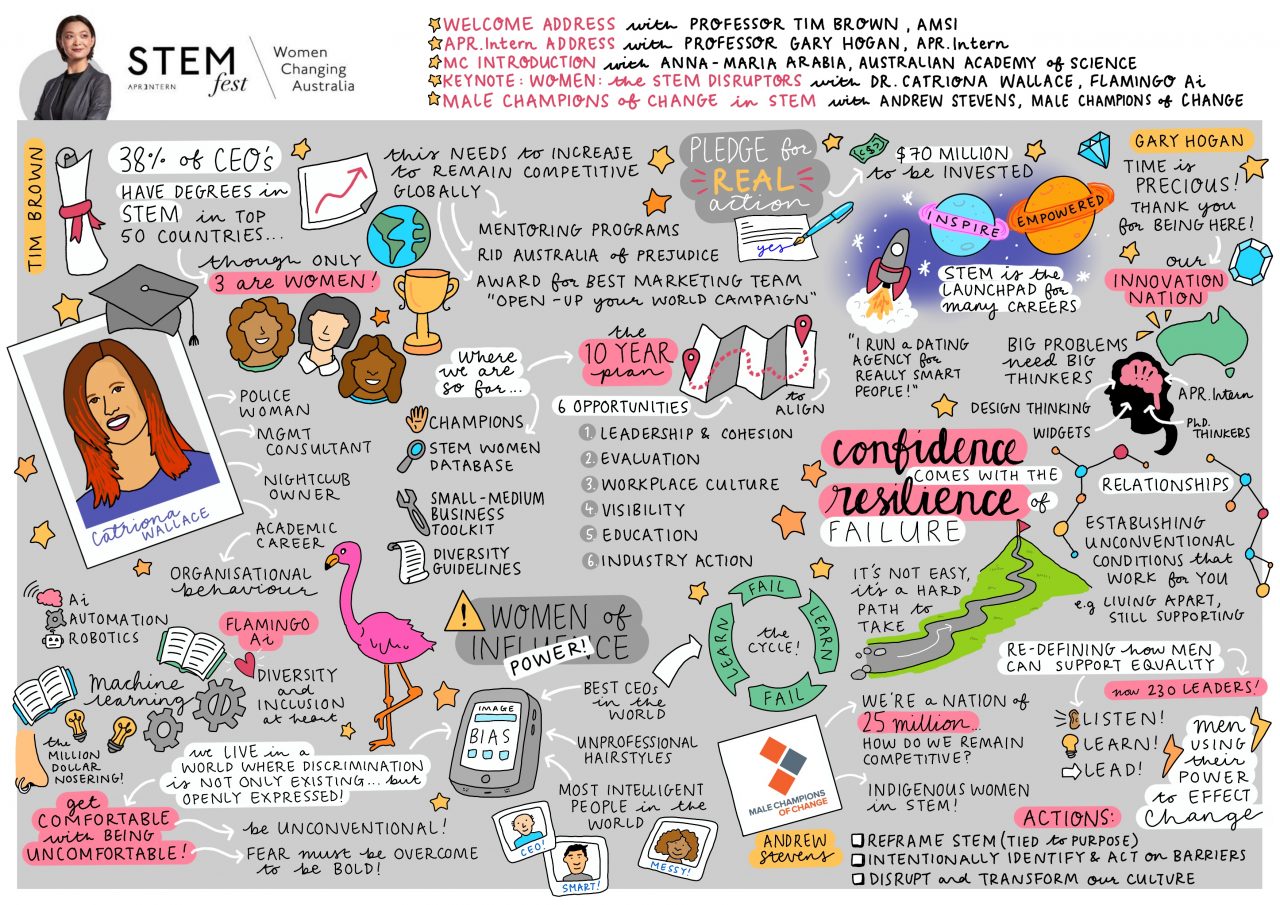 STEM
APR.INTERN
fest
Women
Changing
Australia
WELCOME ADDRESS with PROFESSOR TIM BROWN, AMSI
APR.Intern ADDRESS with PROFESSOR GARY HOGAN, APR.Intern
MC INTRODUCTION with ANNA-MARIA ARABIA, AUSTRALIAN ACADEMY of SCIENCE
KEYNOTE: WOMEN: the STEM DISRUPTORS with DR. CATRIONA WALLACE, FLAMINGO Ai
MALE CHAMPIONS of CHANGE in STEM with ANDREW STEVENS, MALE CHAMPIONS of CHANGE
TIM BROWN
38% of CEO's
HAVE DEGREES in
STEM in TOP
50 COUNTRIES...
though ONLY
3 are WOMEN!
this NEEDS to INCREASE
to REMAIN COMPETITIVE
GLOBALLY
MENTORING PROGRAMS
RID AUSTRALIA of PREJUDICE
AWARD for BEST MARKETING TEAM
"OPEN-UP your WORLD CAMPAIGN"
PLEDGE for
REAL
action
yes
$70 MILLION
to be INVESTED
INSPIRE
EMPOWERED
STEM is the
LAUNCHPAD for
many CAREERS
GARY HOGAN
TIME is
PRECIOUS!
THANK you
for BEING HERE!
our
INNOVATION
NATION
"I RUN a DATING
AGENCY for
REALLY SMART
PEOPLE!"
BIG PROBLEMS
need BIG
THINKERS
DESIGN THINKING
WIDGETS
APR.Intern
PhD.
THINKERS
where
we are
so far...
CHAMPIONS
STEM WOMEN
DATABASE
SMALL-MEDIUM
BUSINESS
TOOLKIT
DIVERSITY
GUIDELINES
the
10 YEAR
plan
to
ALIGN
6 OPPORTUNITIES
1 LEADERSHIP & COHESION
2 EVALUATION
3 WORKPLACE CULTURE
4 VISIBILITY
5 EDUCATION
6 INDUSTRY ACTION
Catriona
WALLACE
POLICE
WOMAN
MGMT
CONSULTANT
NIGHTCLUB
OWNER
ACADEMIC
CAREER
ORGANISATIONAL
behaviour
Ai
AUTOMATION
ROBOTICS
FLAMINGO
Ai
DIVERSITY
and
INCLUSION
at heart
Machine
learning
the
MILLION
DOLLAR
NOSERING!
we LIVE in a
WORLD WHERE DISCRIMINATION
is NOT ONLY EXISTING... but
OPENLY EXPRESSED!
get
COMFORTABLE
with BEING
UNCOMFORTABLE!
be UNCONVENTIONAL!
FEAR must be OVERCOME
to be BOLD!
WOMEN of
INFLUENCE
POWER!
IMAGE
BIAS
BEST CEOs
in the
WORLD
UNPROFESSIONAL
HAIRSTYLES
MOST INTELLIGENT
PEOPLE in the
WORLD
CEO!
SMART!
MESSY!
confidence
COMES WITH THE
resilience of
FAILURE
FAIL
LEARN
FAIL
LEARN
the
CYCLE!
IT'S NOT EASY,
it's a HARD
PATH to
TAKE
RELATIONSHIPS
ESTABLISHING
UNCONVENTIONAL
CONDITIONS that
WORK for YOU
e.g LIVING APART,
STILL SUPPORTING
MALE CHAMPIONS
OF CHANGE
ANDREW
Stevens
WE'RE a NATION of
25 million...
HOW DO WE REMAIN
COMPETITIVE?
INDIGENOUS WOMEN
in STEM!
RE-DEFINING how MEN
CAN SUPPORT EQUALITY
now 230 LEADERS!
LISTEN!
LEARN!
LEAD!
men
USING
their
POWER
to EFFECT
Change
ACTIONS:
REFRAME STEM (TIED to PURPOSE)
INTENTIONALLY IDENTIFY & ACT on BARRIERS
DISRUPT and TRANSFORM our CULTURE